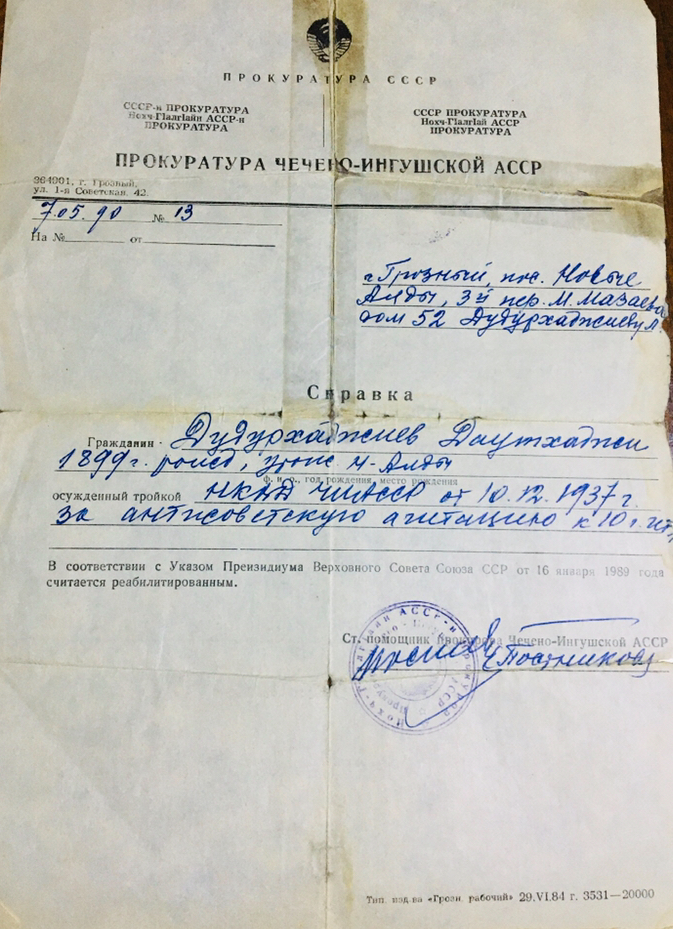 ПРОКУРАТУРА СССР
СССР-н ПРОКУРАТУРА
Нохч-ГIалгIайн АССР-н
ПРОКУРАТУРА
СССР ПРОКУРАТУРА
Нохч-ГIалгIай АССР
ПРОКУРАТУРА
ПРОКУРАТУРА ЧЕЧЕНО-ИНГУШСКОЙ АССР
364901, г. Грозный,
ул. 1-я Советская, 42.
7.05.90 № 13
На № от
г. Грозный, пос. Новые
Алды, 3й пер. М. Мазаева
дом 52 Дудурхаджиеву Л.
Справка
Гражданин Дудурхаджиев Даутхаджи
1899 г. рожд, урож. Н-Алды
ф. и. о., год рождения, место рождения
осужденный тройкой НКВД ЧИАССР от 10.12.1937 г.
за антисоветскую агитацию к 10 г.
В соответствии с Указом Преизидиума Верховного Совета Союза ССР от 16 января 1989 года
считается реабилитированным.
Ст. помощник прокурора Чечено-Ингушской АССР
Постникова
Тип. изд-ва «Грозн. рабочий» 29.VI.84 г. 3531—20000